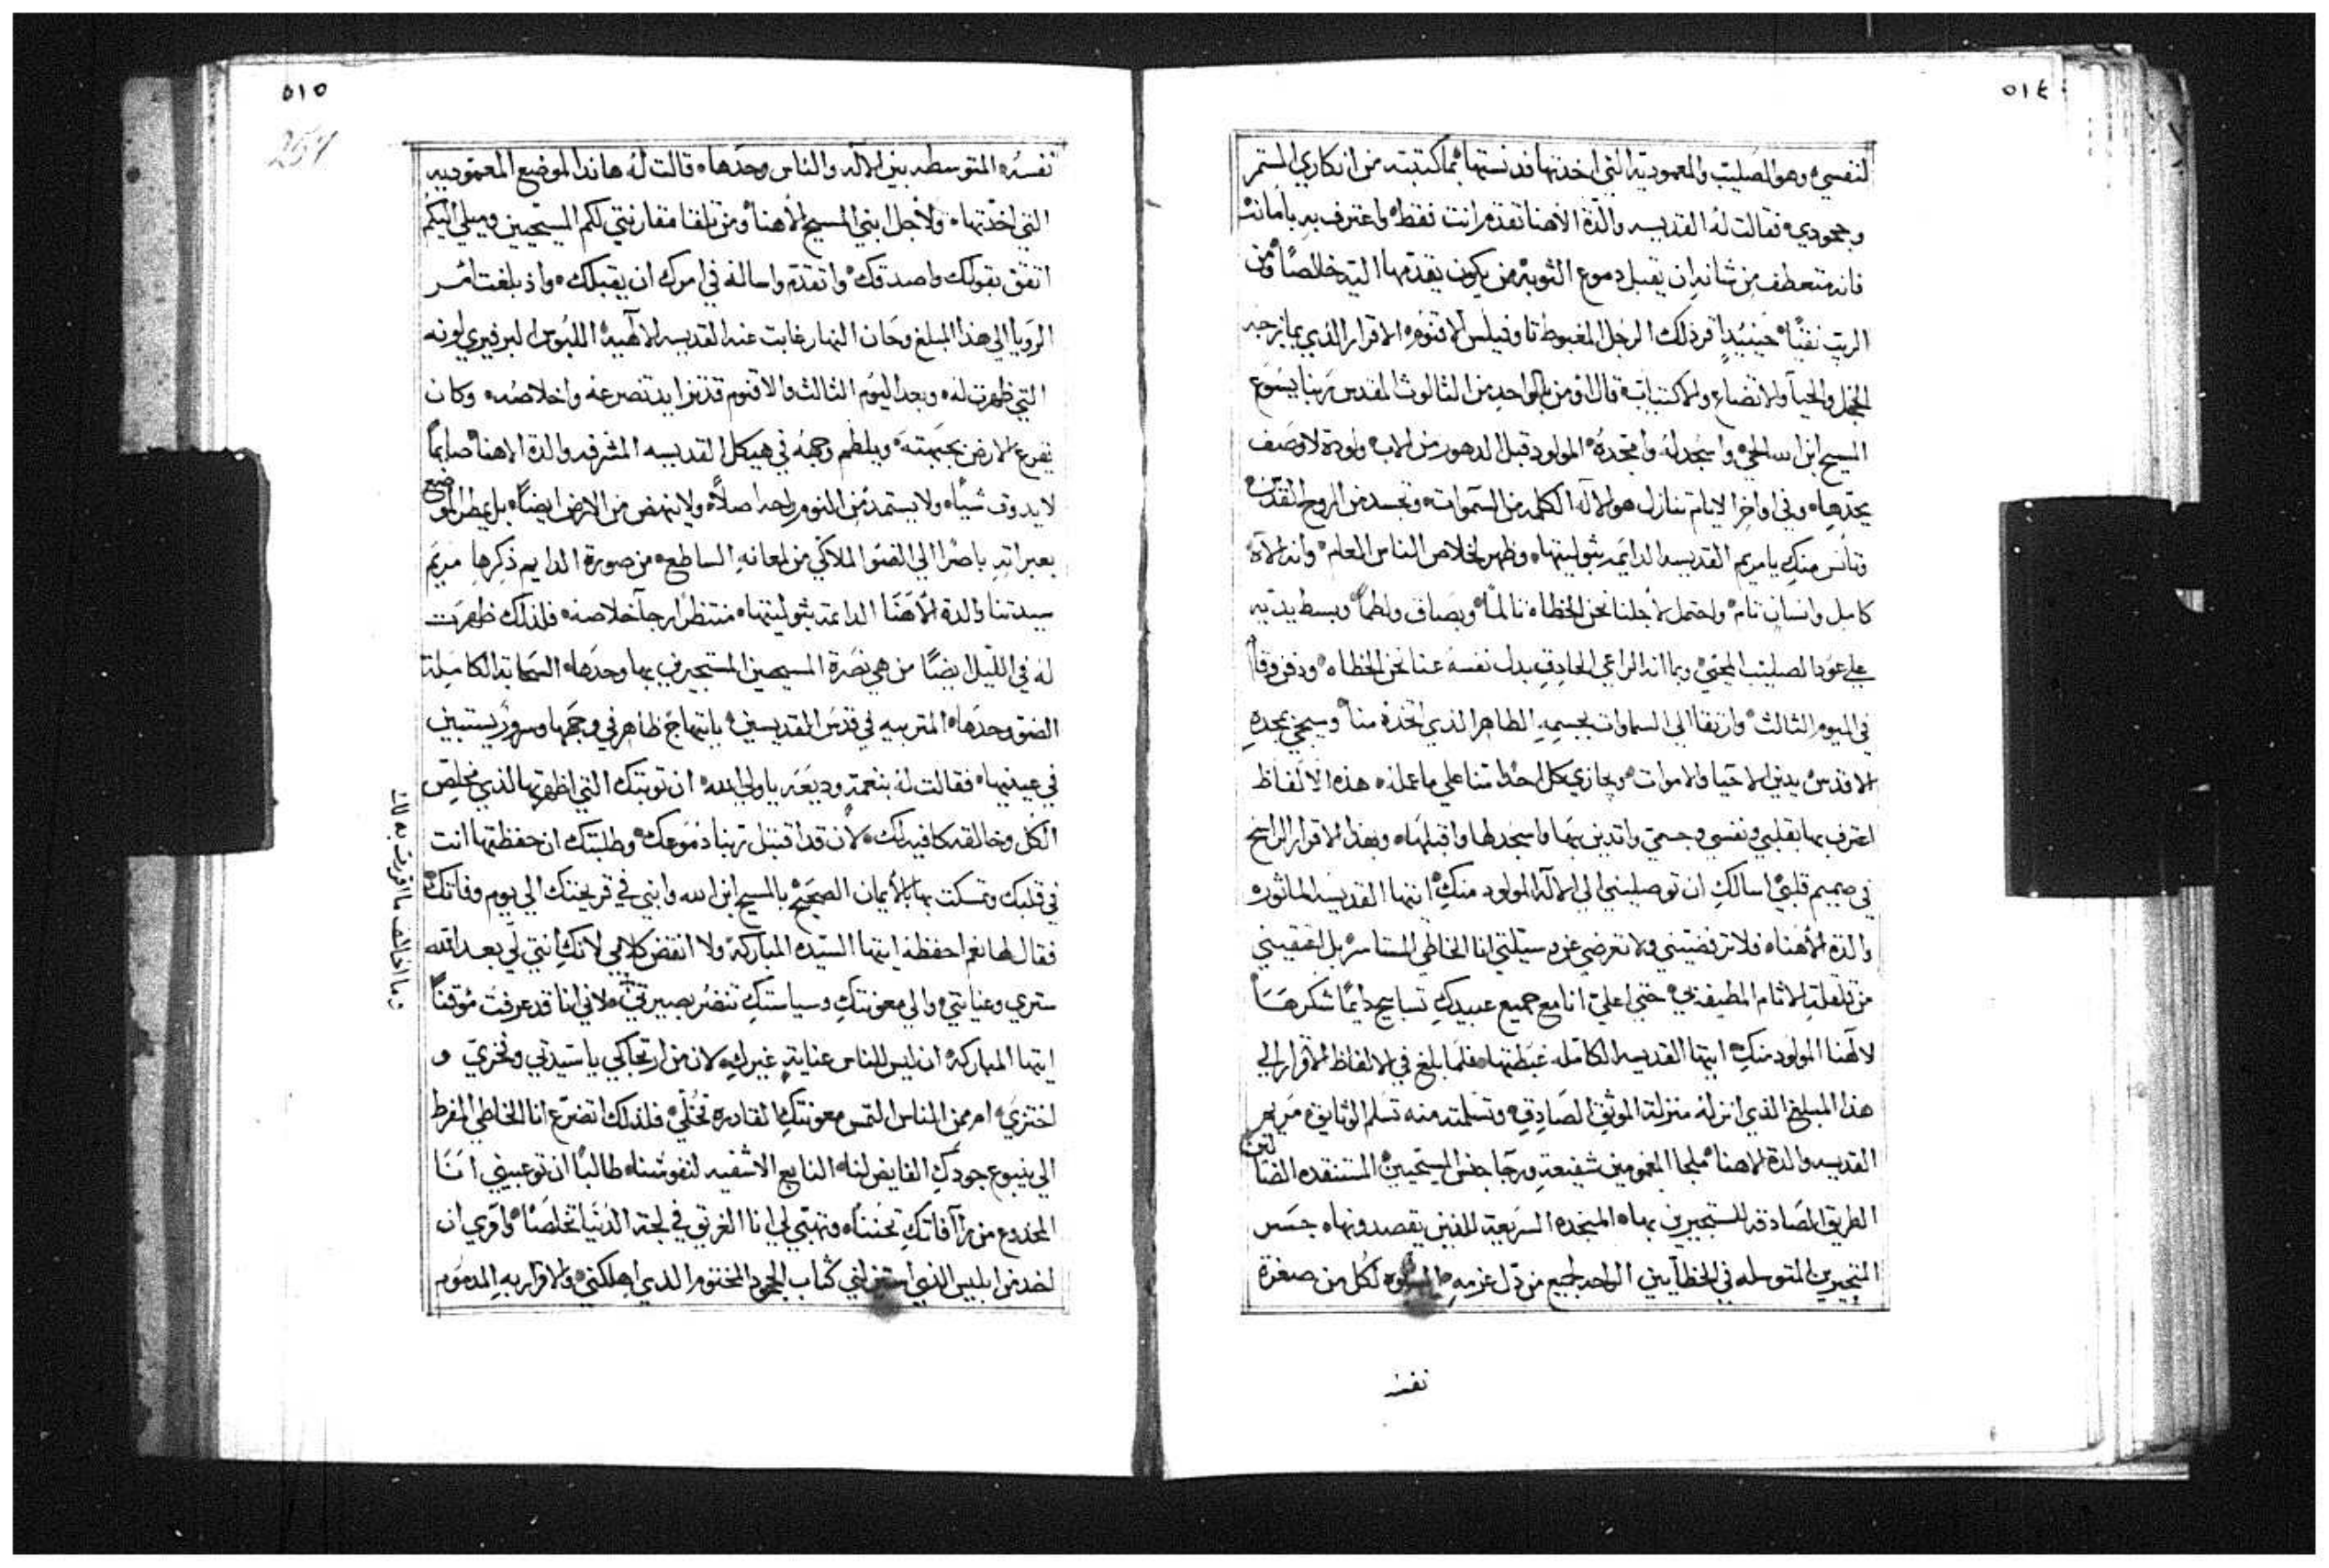 ٥١٤
لنفسي وهو الصليب والمعموديه التي اخذتها قد نستها بما كتبته من انكاري المستمر
وجحودي فقالت له القديسه والدة الاهنا تقدم انت فقط واعترف به بامانه
فانه متعطف من شانه ان يقبل دموع التوبه من يكون يقدمها اليه خالصا ومن
الريب نقيا حينيدٍ اقر ذلك الرجل المغبوط تاوفيلس لاقنومه الاقرار الذي يمازجه
الخجل والحيا والاتضاع والاكتياب قال اومن بالواحد من الثالوث المقدس ربنا يسوع
المسيح ابن الله الحي واسجد له وامجده المولود قبل الدهور من الاب ولودة لا وصف
يحدها وفي اواخر الايام تنازل هو الاله الكلمه من السموات وتجسد من الروح القدس
وتانس منكِ يا مريم القديسه الدايمه بتوليتها وظهر لخلاص الناس العالم وانه الاه
كامل وانسان تام واحتمل لاجلنا نحن الخطاه تالما وبصاق ولطما وبسط يديه
علي عود الصليب المحيي وبما انه الراعي الحادق بدل نفسه عنا نحن الخطاه ودفن وقام
في اليوم الثالث وارتقا الي السماوات بجسمه الطاهر الذي اتخذه منا وسيجي بمجده
الاقدس يدين الاحيا والاموات ويجازي كل احدا منا علي ما عمله هذه الالفاظ
اعترف بها بقلبي ونفسي وجسمي واتدين بها واسجد لها واقبلها وبهذا الاقرار الراسخ
في صميم قلبي اسالكِ ان توصليني الي الاله المولود منكِ ايتها القديسه الماثوره
والدة الاهنا فلا ترفضيني ولا تعرضي عن وسيلتي انا الخاطي المستاسر بل اعتقيني
من قلقلة الاثام المطيفة بي حتي اعلي انا مع جميع عبيدكِ تسابيح دايما شكرها
لالهنا المولود منكِ ايتها القديسه الكامله غبطتها فلما بلغ في الالفاظ الاقرار الي
هذا المبلغ الذي انزله منزلة الموثق الصادق وتسلمته منه تسلم الوثايق مريم
القديسه والدة الاهنا ملجا المغمومين شفيعة ورجا جنس المسيحيين المستنقده الضالين
الطريق الصادقه للمستجيرين بها المنجده السريعه للذين يقصدونها جسر
المتحيرين المتوسله في الخطايين الواحد لجميع من دل عزمه لكل من صغرة
نفسه
٥١٥
251
نفسه المتوسطه بين الاله والناس وحدها قالت له هاندا لموضع المعموديه
التي اخذتها ولاجل ابني المسيح الاهنا ومن تلقا مقاربتي لكم المسيحيين وميلي اليكم
اتثق بقولك واصدقك واتقدم واساله في امرك ان يقبلك واذ بلغت امر
الرويا الي هذا المبلغ وحان النهار غابت عنه القديسه الالهيه الملبوس البرفيري لونه
التي ظهرت له وبعد اليوم الثالث والاقنوم قد تزايد تضرعه واخلاصه وكان
يقرع الارض بجبهته ويلطم وجهه في هيكل القديسه المشرفه والدة الاهنا صايما
لا يدوق شيا ولا يستمد من النوم راحه اصلا ولا ينهض من الارض ايضا بل يمطر الموضع
بعبراته باصرا الي الضو الملاكي من لمعانه الساطع من صورة الدايم ذكرها مريم
سيدتنا والدة الاهنا الدايمه بتوليتها منتظرا رجا خلاصه فلذلك ظهرت
له في الليل ايضا من هي نصرة المسيحيين المستجيرين بها وحدها السحابه الكامله
الضو وحدها المتربيه في قدس القديسين بابتهاج ظاهر في وجهها وسرور يستبين
في عينيها فقالت له بنعمة وديعه يا ولي الله ان توبتك التي اظهرتها الذي مخلص
الكل وخالقه كافيه لك لان قد اقتبل ربنا دموعك وطلبتك ان حفظتها انت
في قلبك وتمسكت بها بالايمان الصحيح بالمسيح ابن الله وابني في قريحتك الي يوم وفاتك
فقال لها نعم احفظه ايتها السيده المباركه ولا انقض كلامي لانكِ انتي لي بعد الله
ستري وعنايتي والي معونتكِ وسياستكِ تنضر بصيرتي لاني انا قد عرفت موقنا
ايتها المباركه ان ليس للناس عناية غيركِ لان من ارتجاكي يا سيدتي ونحزيَ و
اختزيَ ام من من الناس التمس معونتكِ القادره تخلي فلذلك اتضرع انا الخاطي المفرط
الي ينبوع جودكِ الفايض لنا النابع الاشفيه لنفوسنا طالبا ان توعبيني انا
المخدوع من رافاتكِ تحننا وتهبي لي انا الغريق في لجة الدنيا تخلصا وامري ان
اخد من ابليس الذي استغرلني كتاب الجحود المختوم الذي اهلكني والاقرار به المدموم
وما اخالف ما اقررت به لك